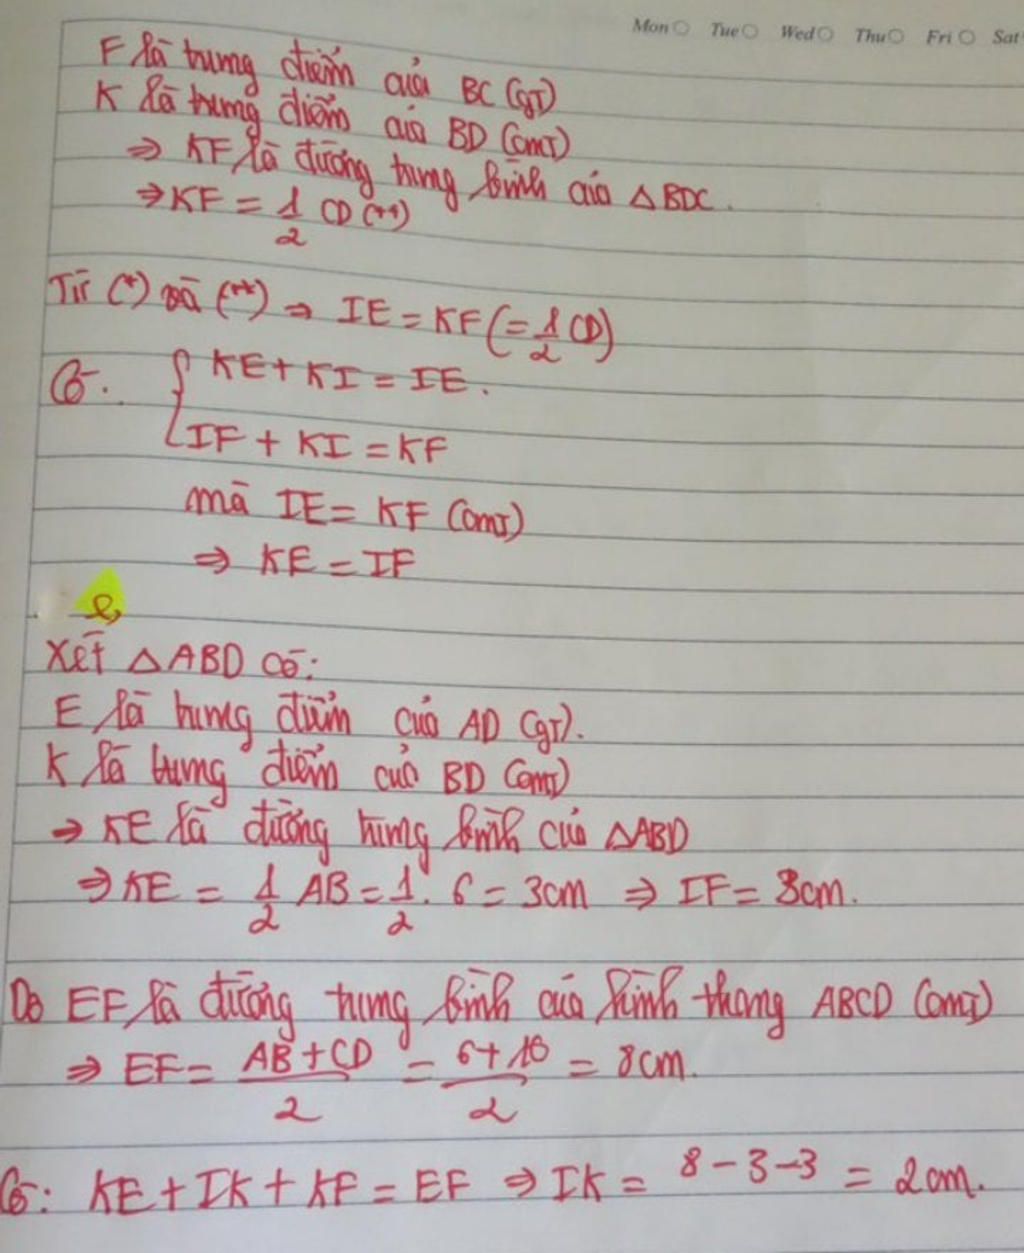 Mon Tue Wed Thu Fri Sat
F là trung điểm của BC (gt)
K là trung điểm của BD (cmt)
⇒ KF là đường trung bình của △BDC.
⇒ KF = 1/2 CD (**)
Từ (*) và (**) ⇒ IE = KF (= 1/2 CD)
Có: { KE + KI = IE.
IF + KI = KF
mà IE = KF (cmt)
⇒ KE = IF
e,
Xét △ABD có:
E là trung điểm của AD (gt).
K là trung điểm của BD (cmt)
⇒ KE là đường trung bình của △ABD
⇒ KE = 1/2 AB = 1/2 . 6 = 3cm ⇒ IF = 3cm.
Do EF là đường trung bình của hình thang ABCD (cmt)
⇒ EF = (AB + CD)/2 = (6 + 10)/2 = 8cm.
Có: KE + IK + KF = EF ⇒ IK = 8 - 3 - 3 = 2cm.